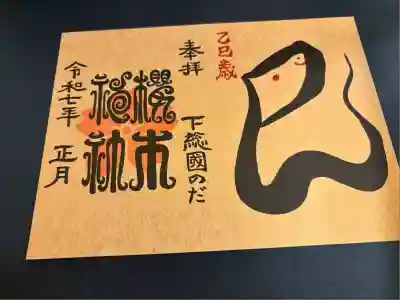 乙巳歳
奉拝
下総國のだ
櫻木神社
令和七年 正月